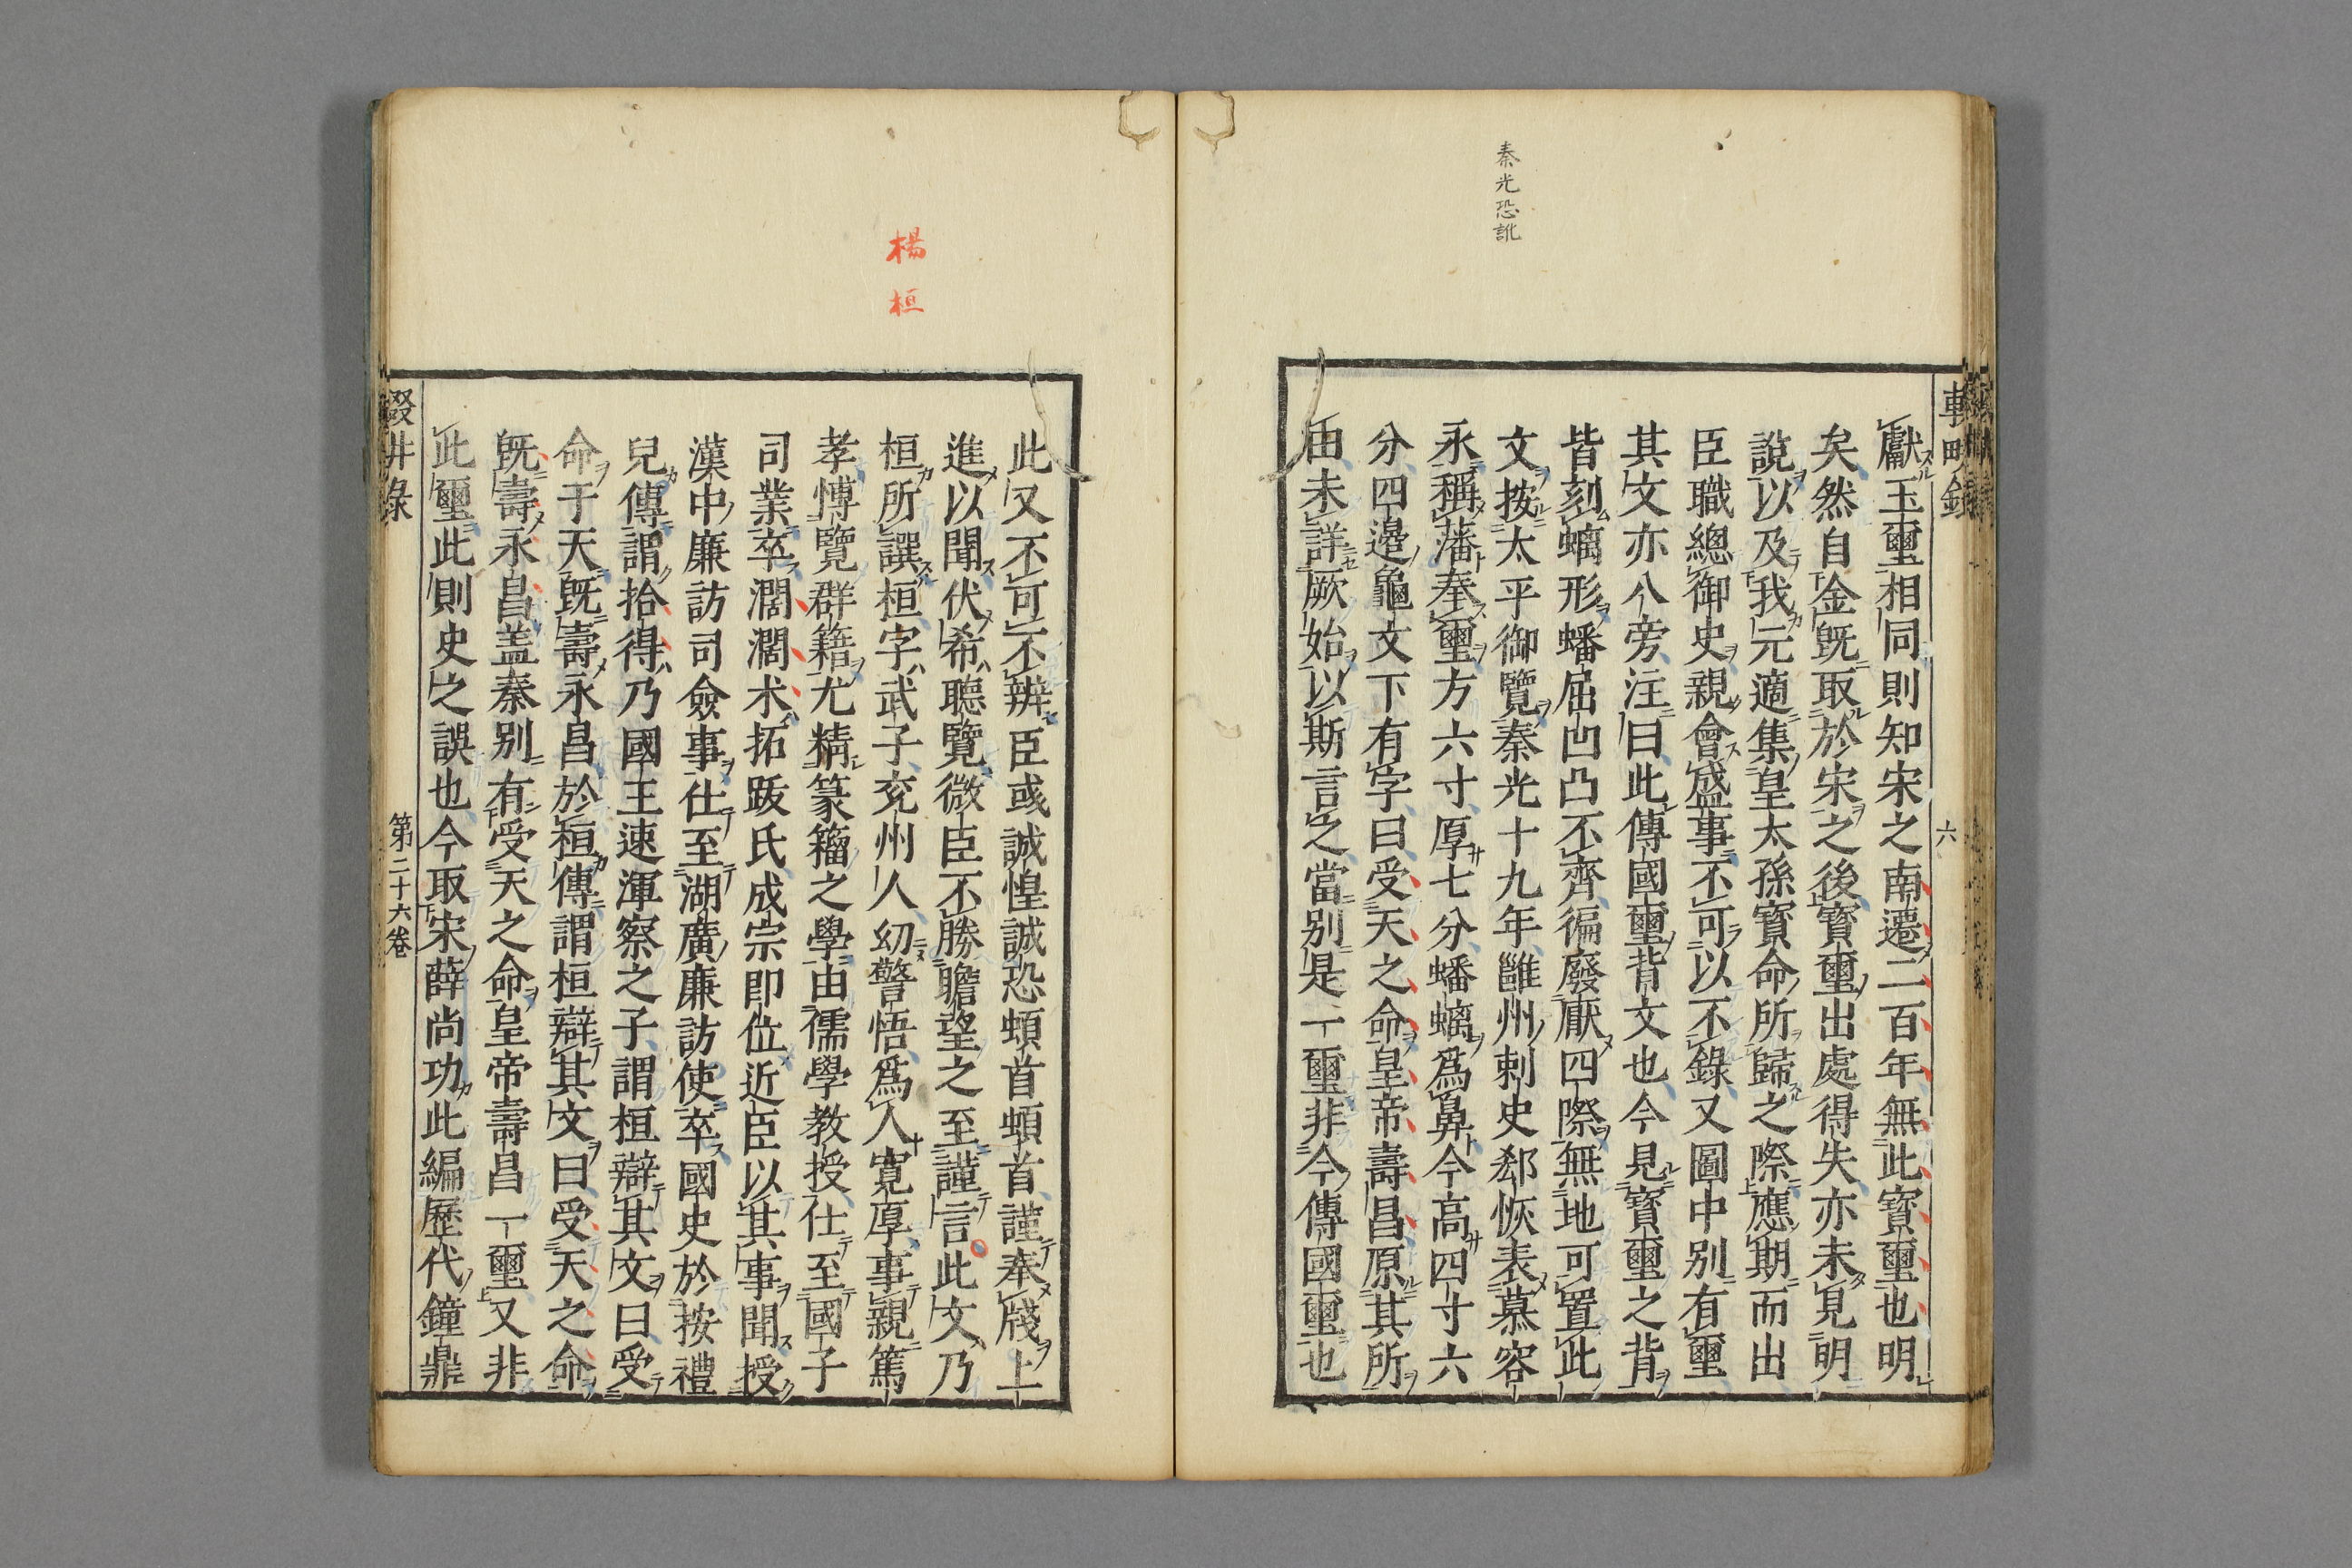 秦光恐訛
六
獻玉璽相同則知宋之南遷二百年無此寶璽也明
矣然自金旣取於宋之後寶璽出處得失亦未見明
說以及我元適集皇太孫寶命所歸之際應期而出
臣職總御史親會盛事不可以不錄又圖中別有璽
其文亦八旁注曰此傳國璽背文也今見寶璽之背
皆刻螭形蟠屈凹凸不齊徧廢厭四際無地可置此
文按太平御覽秦光十九年雝州刺史郄恢表慕容
永稱藩奉璽方六寸厚七分蟠螭爲鼻今高四寸六
分四邉龜文下有字曰受天之命皇帝壽昌原其所
由未詳厥始以斯言之當別是一璽非今傳國璽也
楊桓
此又不可不辨臣彧誠惶誠恐頓首頓首謹奉牋上
進以聞伏希聽覽微臣不勝瞻望之至謹言此文乃
桓所譔桓字武子兖州人幼警悟爲人寛厚事親篤
孝愽覽群籍尤精篆籀之學由儒學教授仕至國子
司業卒濶濶术拓跋氏成宗即位近臣以其事聞授
漢中廉訪司僉事仕至湖廣廉訪使卒國史於按禮
兒傳謂拾得乃國王速渾察之子謂桓辯其文曰受
命于天旣壽永昌於桓傳謂桓辯其文曰受天之命
旣壽永昌盖秦別有受天之命皇帝壽昌一璽又非
此璽此則史之誤也今取宋薛尚功此編歷代鐘鼎
輟畊錄
第二十六卷